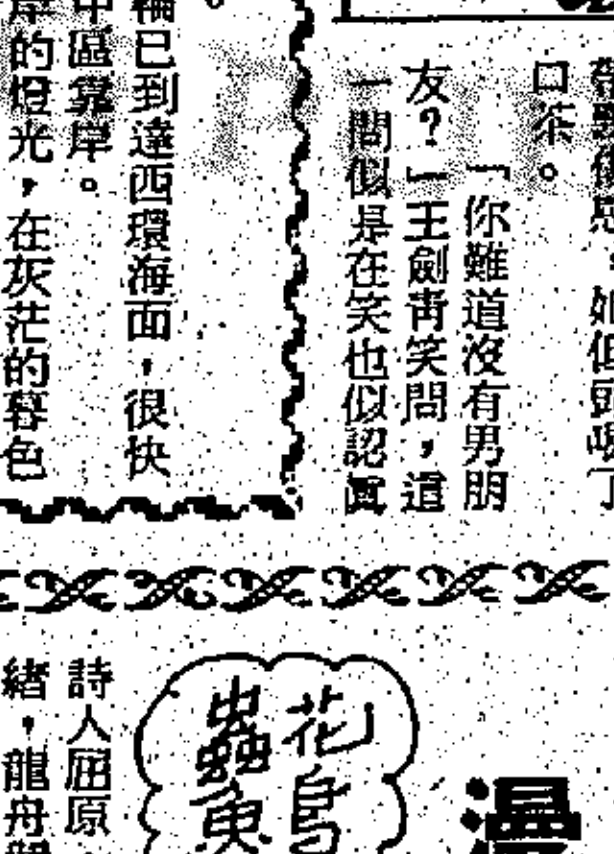 口茶。
「你難道沒有男朋
友？」王劍青笑問，這
一問似是在笑也似認眞
輪已到達西環海面，很快
中區靠岸。
岸的燈光，在灰茫的暮色
花鳥
蟲魚
詩人屈原
緒，龍舟